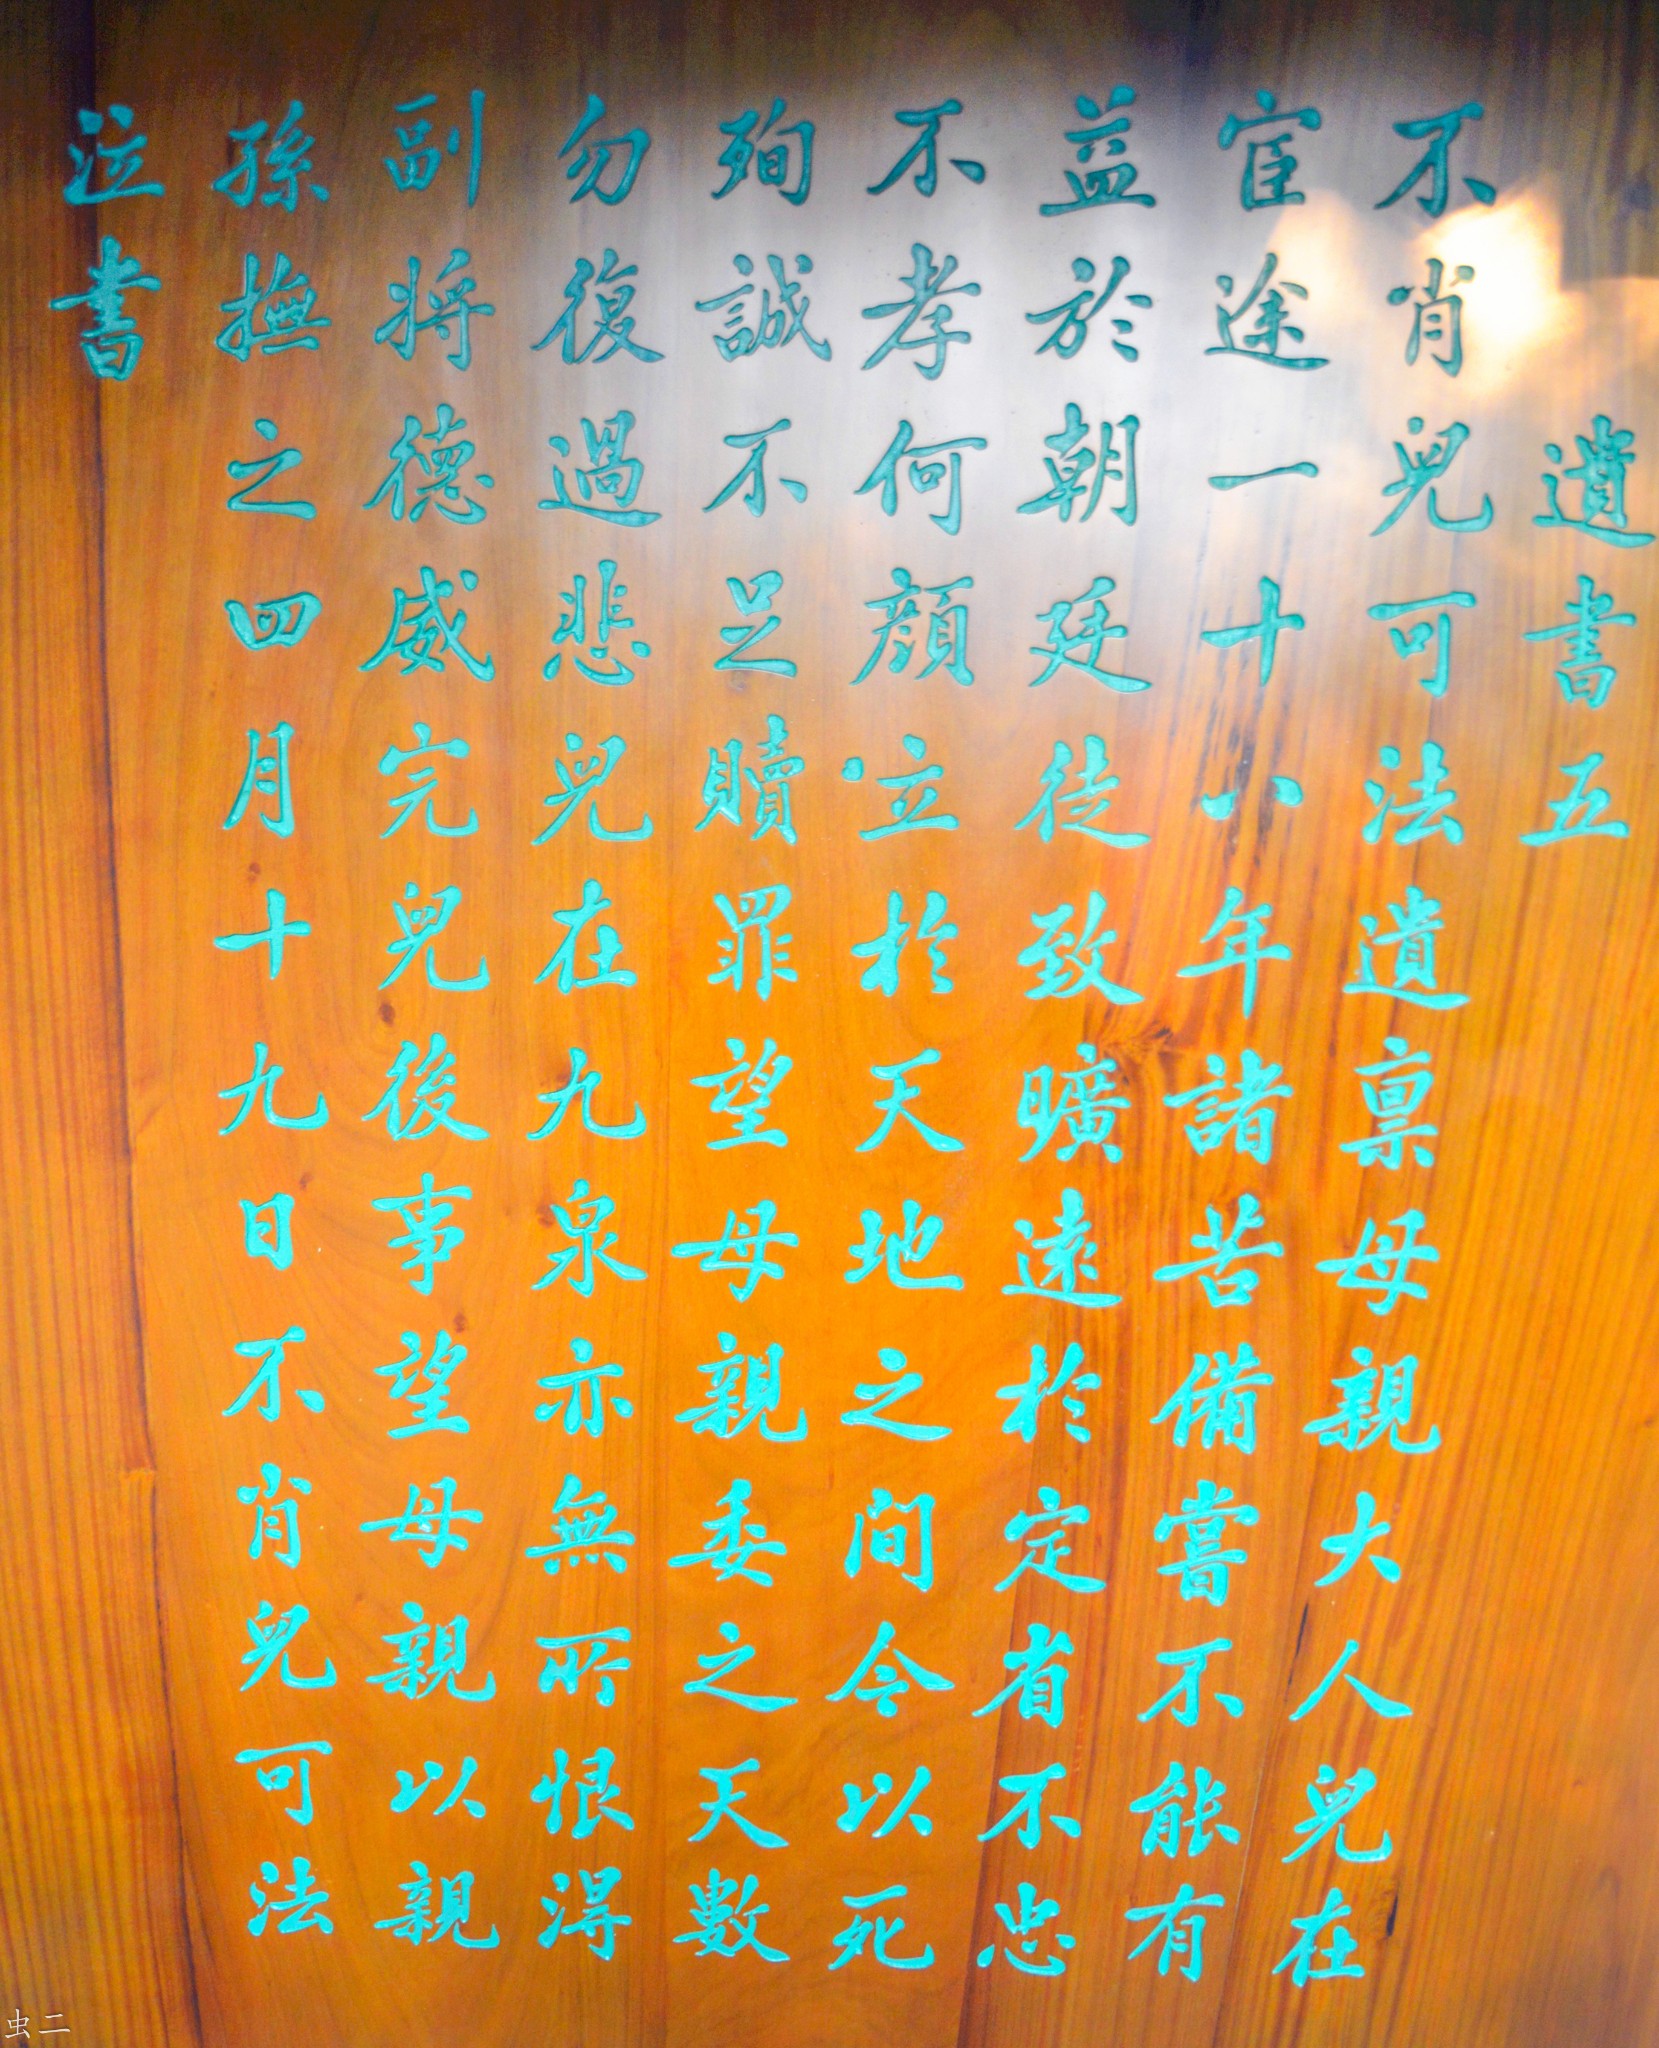 遺書五
不肖兒可法遺禀母親大人兒在
宦途一十八年諸苦備嘗不能有
益於朝廷徒致曠遠於定省不忠
不孝何顔立於天地之间今以死
殉誠不足贖罪望母親委之天數
勿復過悲兒在九泉亦無所恨得
副將德威完兒後事望母親以親
孫撫之四月十九日不肖兒可法
泣書
虫二